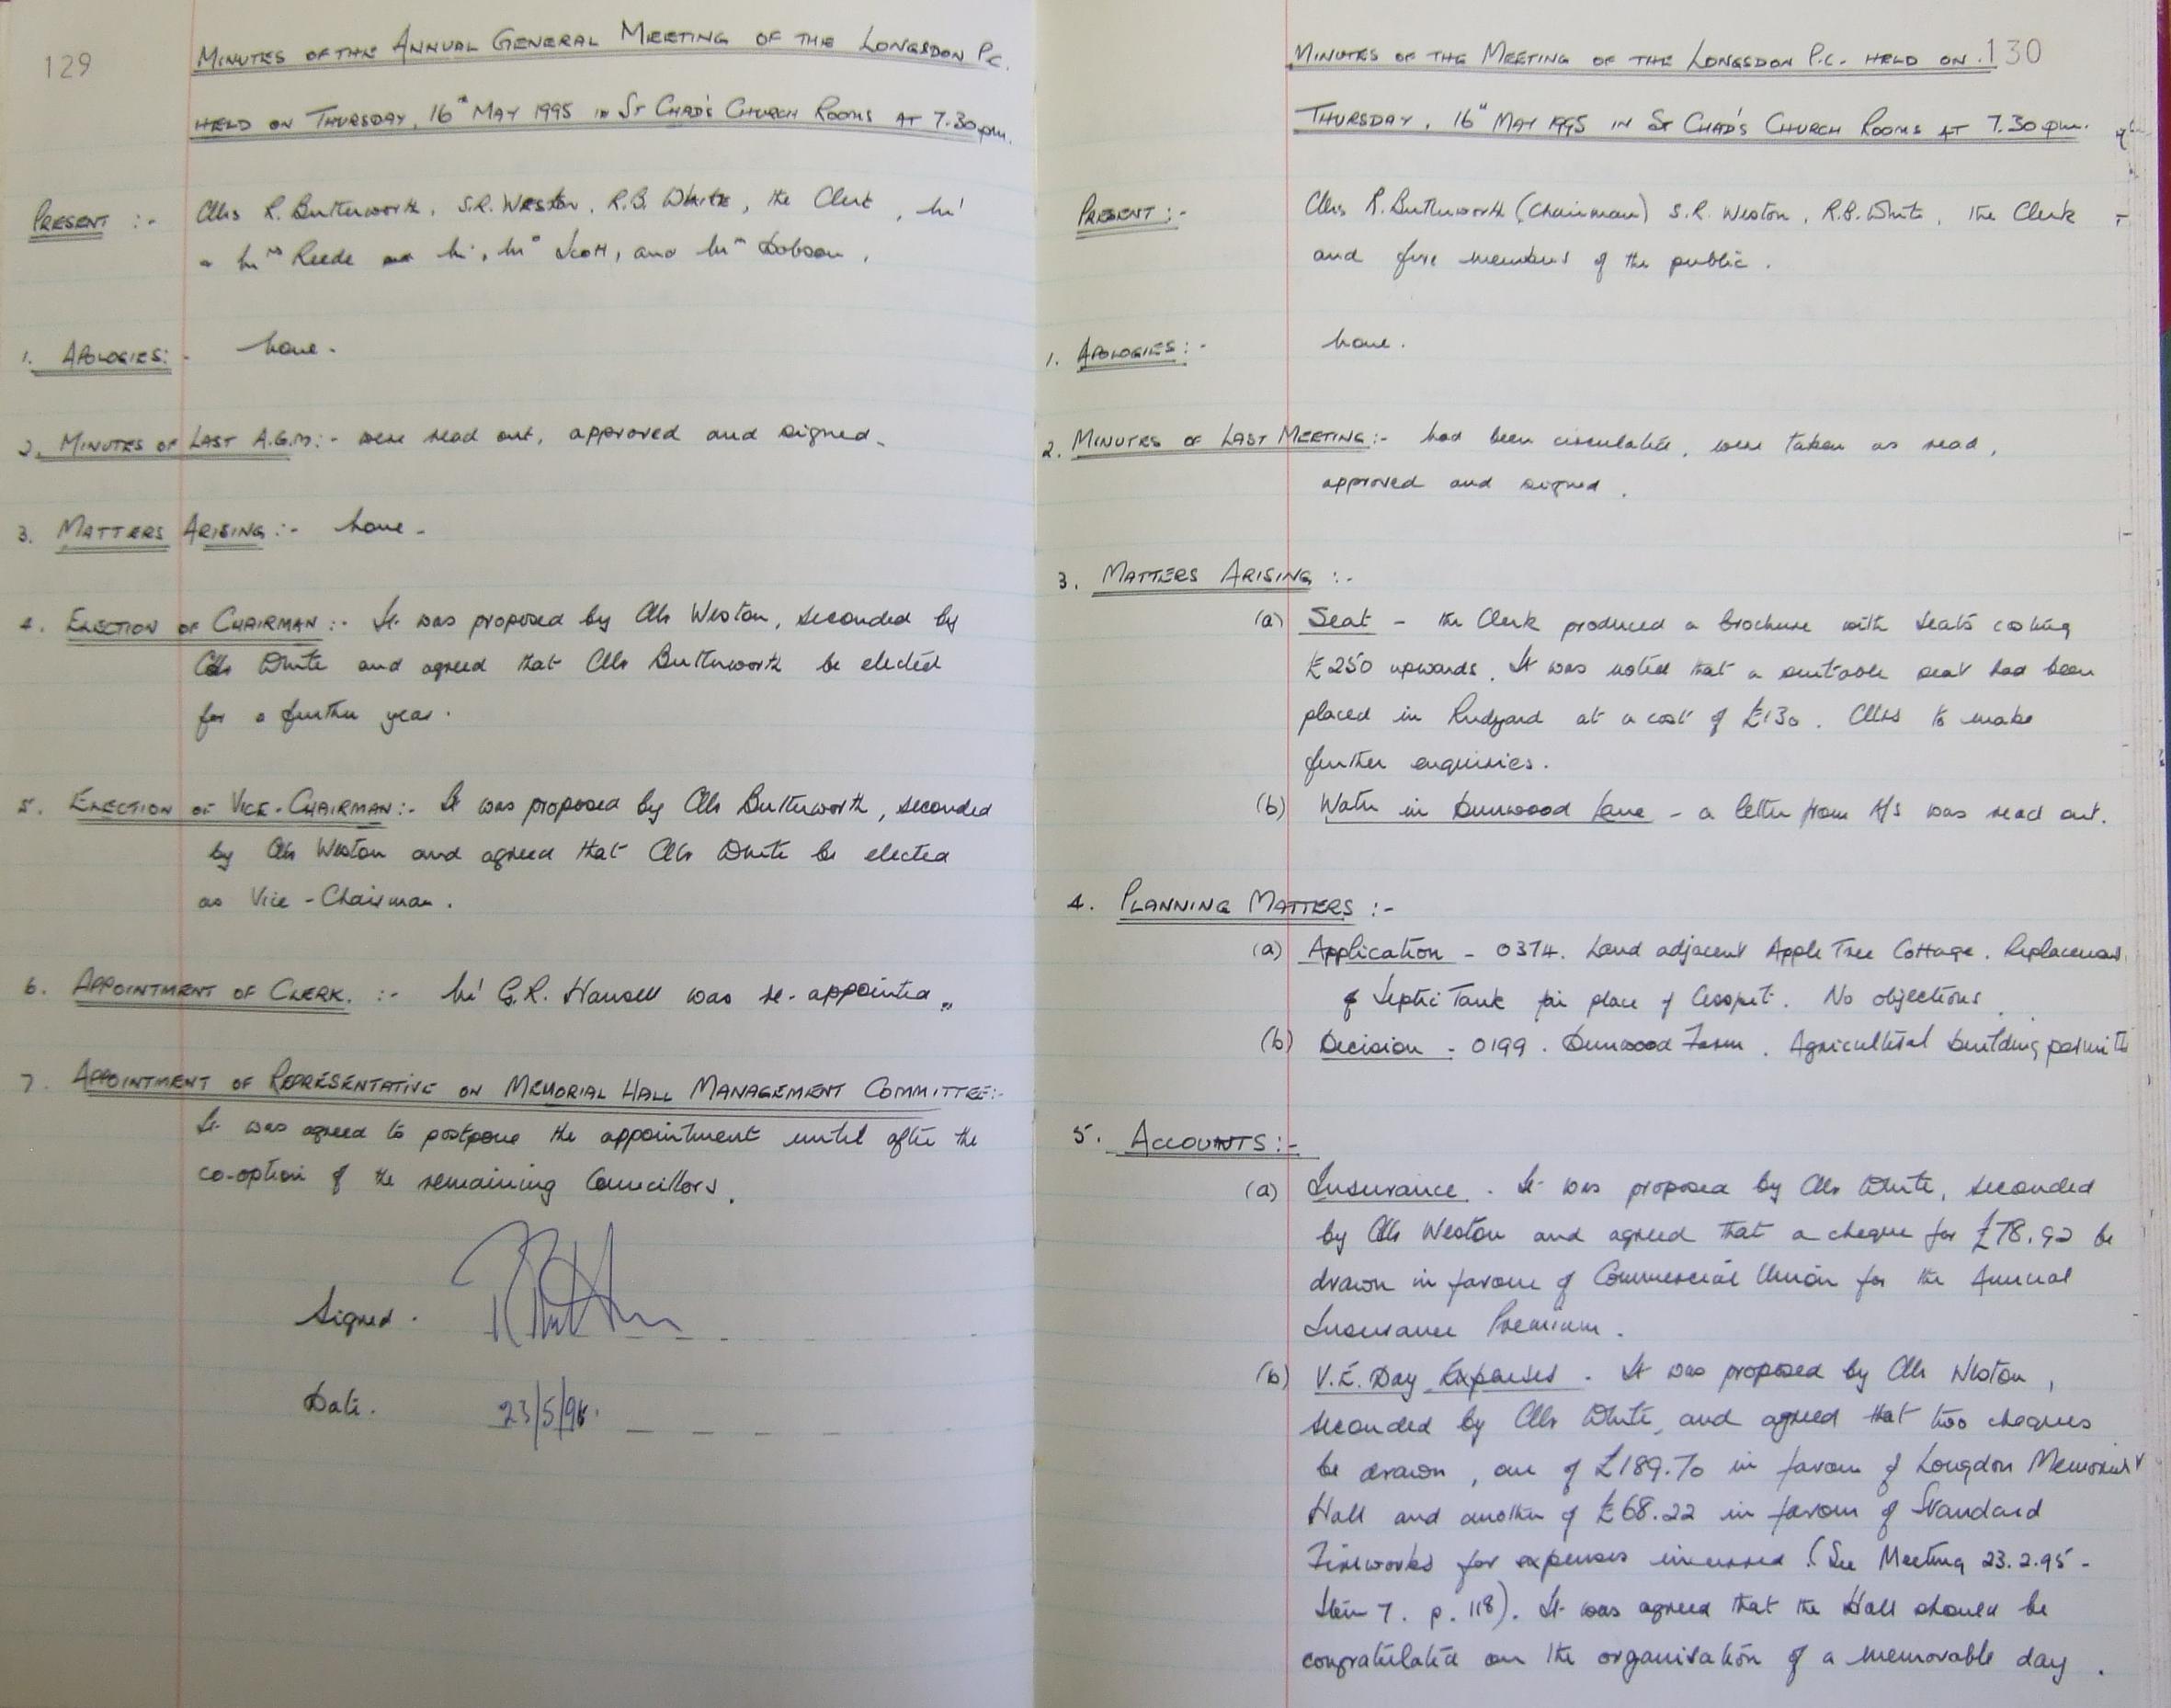 129
MINUTES OF THE ANNUAL GENERAL MEETING OF THE LONGSDON P.C.
HELD ON THURSDAY, 16th MAY 1995 in ST CHAD'S CHURCH ROOMS AT 7.30pm.
PRESENT :- Cllrs R. Butterworth, S.R. Weston, R.B. White, the Clerk, Mr
+ Mrs Reede Mr, Mrs Scott, and Mrs Dobson.
1. APOLOGIES:- None.
2. MINUTES OF LAST A.G.M:- were read out, approved and signed.
3. MATTERS ARISING :- None.
4. ELECTION OF CHAIRMAN :- It was proposed by Cllr Weston, seconded by
Cllr White and agreed that Cllr Butterworth be elected
for a further year.
5. ELECTION OF VICE-CHAIRMAN:- It was proposed by Cllr Butterworth, seconded
by Cllr Weston and agreed that Cllr White be elected
as Vice-Chairman.
6. APPOINTMENT OF CLERK. :- Mr G.R. Hansell was re-appointed.
7. APPOINTMENT OF REPRESENTATIVE ON MEMORIAL HALL MANAGEMENT COMMITTEE:-
It was agreed to postpone the appointment until after the
co-option of the remaining Councillors.
Signed.
Date. 23/5/96.
MINUTES OF THE MEETING OF THE LONGSDON P.C. HELD ON 130
THURSDAY, 16th MAY 1995 IN ST CHAD'S CHURCH ROOMS AT 7.30pm.
PRESENT:- Cllrs R. Butterworth (Chairman) S.R. Weston, R.B. White, the Clerk
and five members of the public.
1. APOLOGIES:- None.
2. MINUTES OF LAST MEETING:- had been circulated, were taken as read,
approved and signed.
3. MATTERS ARISING :-
(a) Seat - the Clerk produced a brochure with seats costing
£250 upwards. It was noted that a suitable seat had been
placed in Rudyard at a cost of £130. Cllrs to make
further enquiries.
(b) Water in Dunwood Lane - a letter from H/S was read out.
4. PLANNING MATTERS :-
(a) Application - 0374. Land adjacent Apple Tree Cottage. Replacement
of Septic Tank in place of Cesspit. No objections.
(b) Decision - 0199. Dunwood Farm. Agricultural building permitted
5. ACCOUNTS:-
(a) Insurance. It was proposed by Cllr White, seconded
by Cllr Weston and agreed that a cheque for £78.92 be
drawn in favour of Commercial Union for the Annual
Insurance Premium.
(b) V.E. Day Expenses. It was proposed by Cllr Weston,
seconded by Cllr White, and agreed that two cheques
be drawn, one of £189.70 in favour of Longsdon Memorial
Hall and another of £68.22 in favour of Standard
Fireworks for expenses incurred. (See Meeting 23.2.95 -
Item 7. p. 118). It was agreed that the Hall should be
congratulated on the organisation of a memorable day.